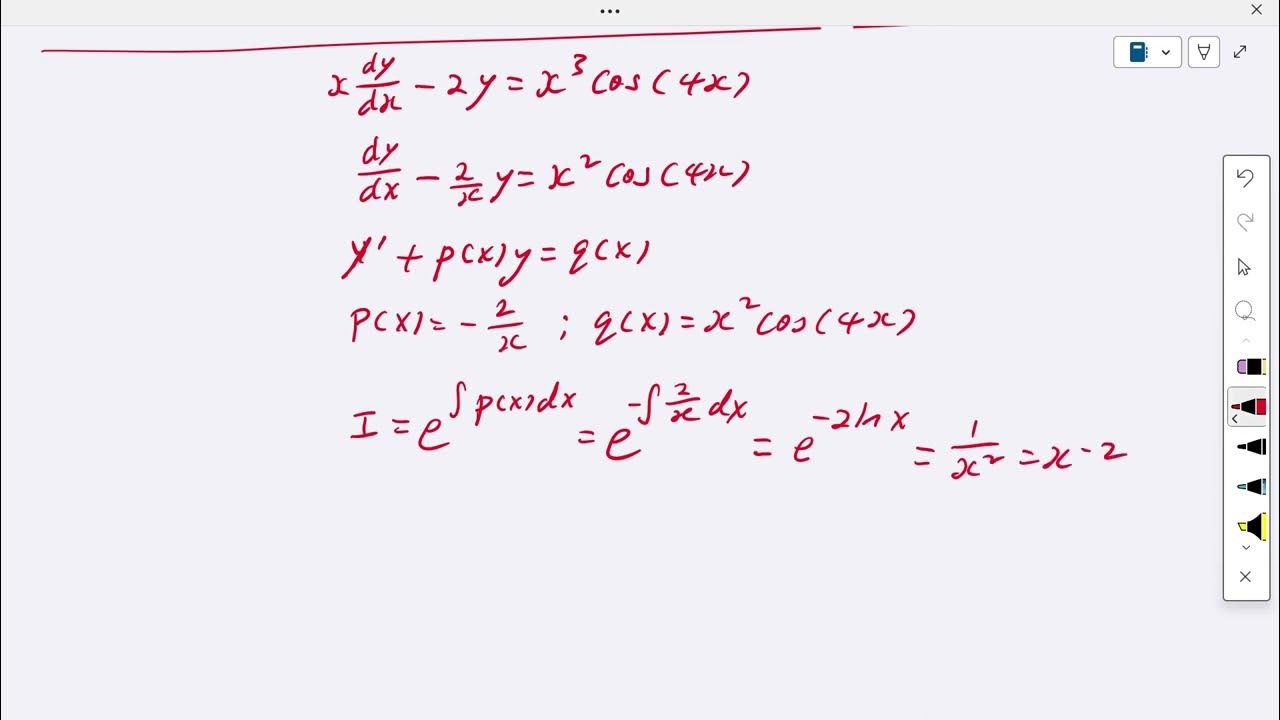 x dy/dx - 2y = x³ cos(4x)
dy/dx - 2/x y = x² cos(4x)
y' + p(x)y = q(x)
P(x) = - 2/x ; q(x) = x² cos(4x)
I = e^∫p(x)dx = e^-∫2/x dx = e^-2ln x = 1/x² = x-2